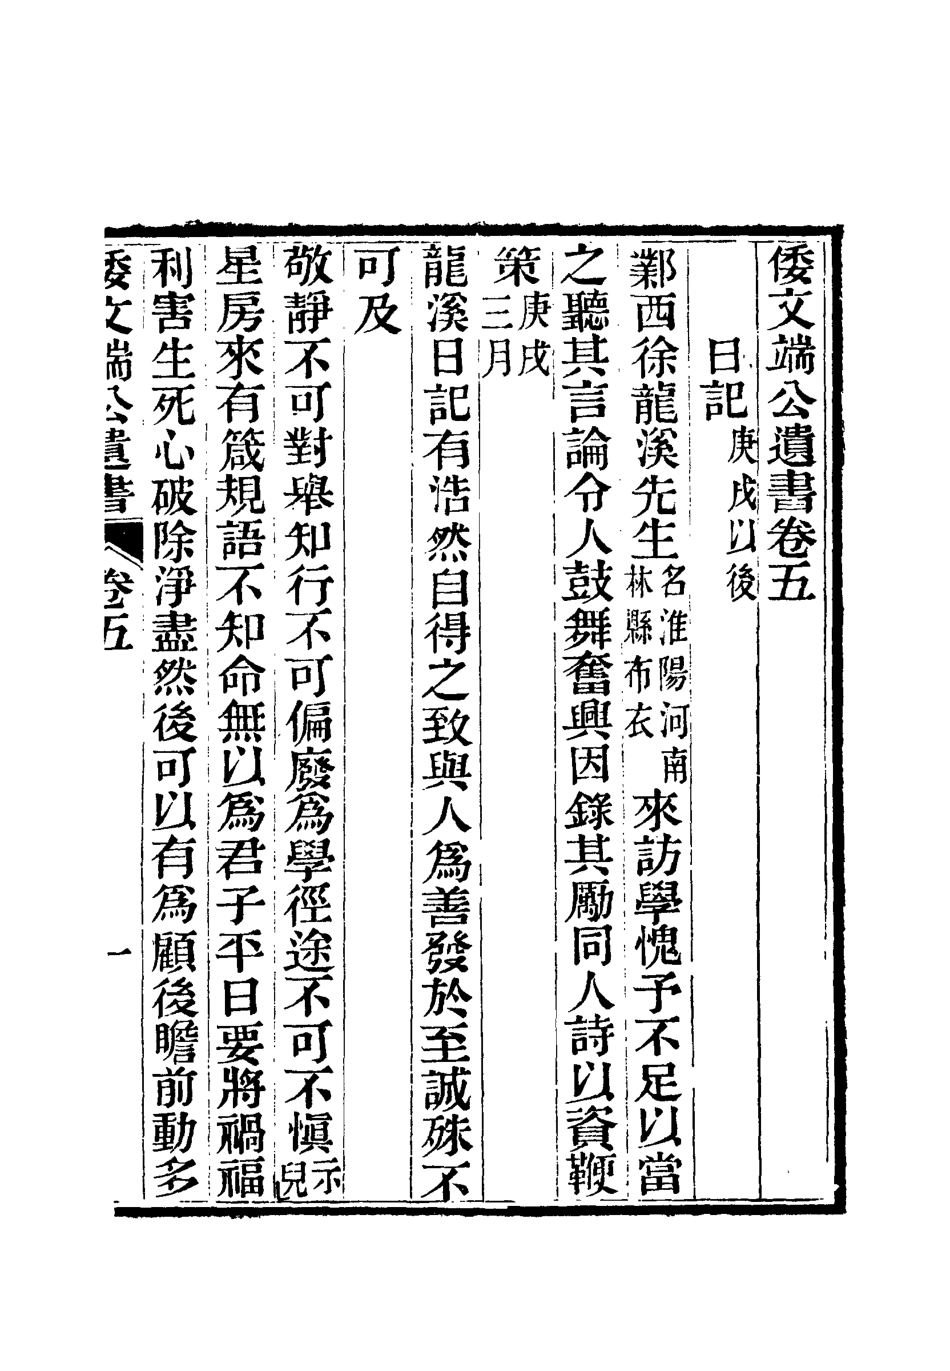 倭文端公遺書卷五
日記庚戌以後
鄴西徐龍溪先生名淮陽河南林縣布衣來訪學愧予不足以當
之聽其言論令人鼓舞奮興因錄其勵同人詩以資鞭
策庚戌三月
龍溪日記有浩然自得之致與人爲善發於至誠殊不
可及
敬靜不可對舉知行不可偏廢爲學徑途不可不愼示兒
星房來有箴規語不知命無以爲君子平日要將禍福
利害生死心破除淨盡然後可以有爲顧後瞻前動多
倭文端公遺書 卷五 一